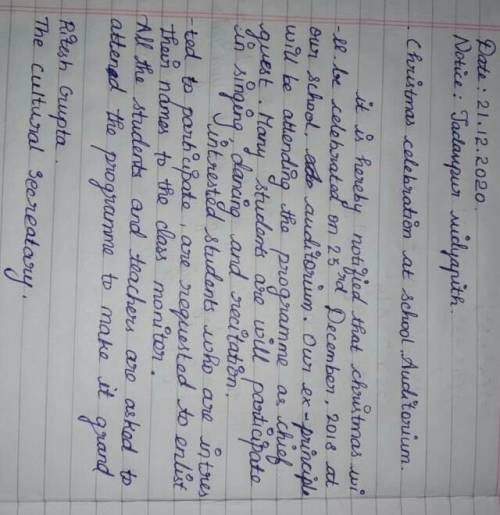 Date : 21.12.2020.
Notice : Jadavpur vidyapith.
Christmas celebration at school Auditorium.
it is hereby notified that christmas wi
-ll be celebrated on 23rd December, 2018 at
our school, auditorium. Our ex-principle
will be attending the programme as chief
guest. Many students are will participate
in singing, dancing and recitation.
interested students who are intres
-ted to participate, are requested to enlist
their names to the class monitor.
All the students and teachers are asked to
attened the programme to make it grand
Ritesh Gupta.
The cultural secreatary.